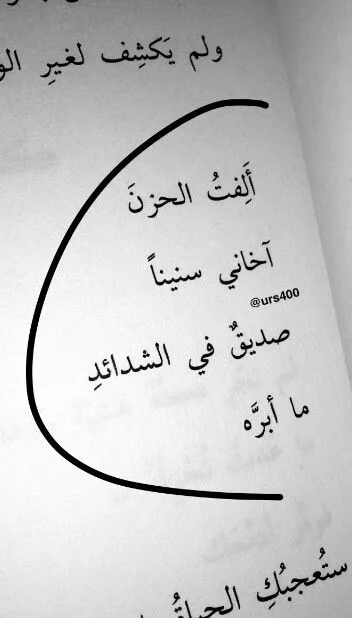 ولم يَكشِف لغيرِ
أَلِفتُ الحزنَ
آخاني سنيناً
@urs400
صديقٌ في الشدائدِ
ما أبرَّه
ستُعجبُكِ الحياةُ